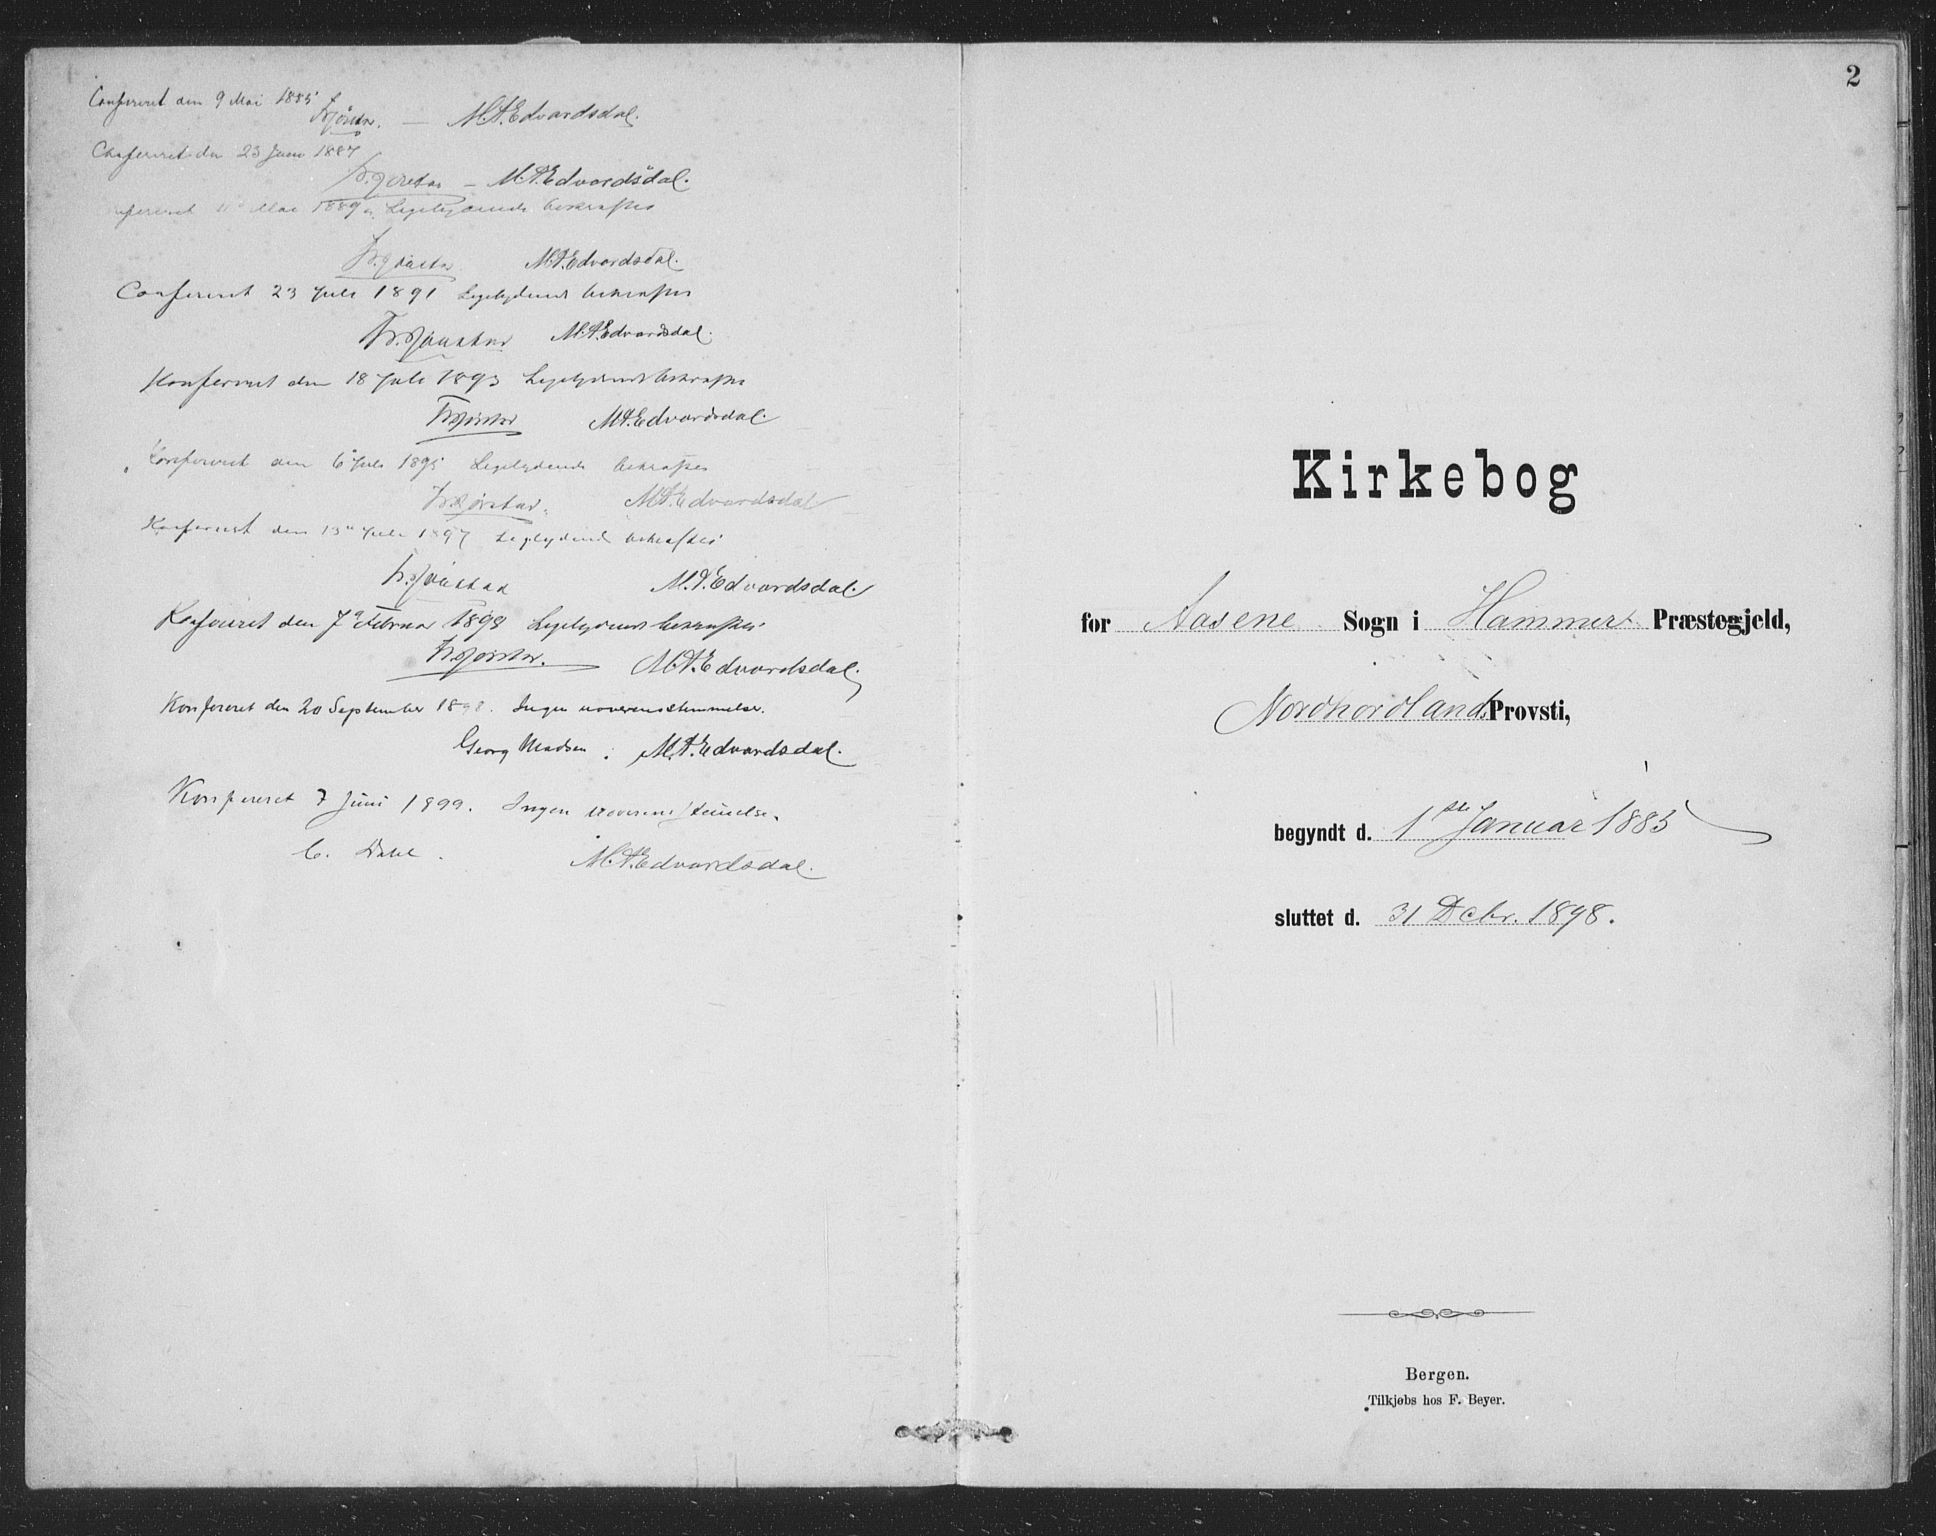 Confereret den 9 Mai 1885
— M.A.Edvardsdal.
Confereret den 23 Juni 1887
— M.A.Edvardsdal.
Mai 1889 Ligelydende bekræftes
M.A.Edvardsdal.
Confereret 23 Juli 1891 Ligelydende bekræftes
M.A.Edvardsdal.
Konfereret den 18 Juli 1893 Ligelydende bekræftes
M.A.Edvardsdal.
Konfereret den 6 Juli 1895 Ligelydende bekræftes
M.A.Edvardsdal
Konfereret den 13 Juli 1897 Ligelydende bekræftes
M.A.Edvardsdal.
Konfereret den 7 Februar 1898 Ligelydende bekræftes
M.A.Edvardsdal.
Konfereret den 20 September 1898. Ingen uoverensstemmelse.
Georg Madsen M.A.Edvardsdal.
Konfereret 7 Juni 1899. Ingen uoverensstemmelse.
C. Dahl. M.A.Edvardsdal.
2
Kirkebog
for Aasene Sogn i Hammers Præstegjeld,
Nordhordlands Provsti,
begyndt d. 1ste Januar 1885
sluttet d. 31 Dcbr. 1898.
Bergen.
Tilkjøbs hos F. Beyer.